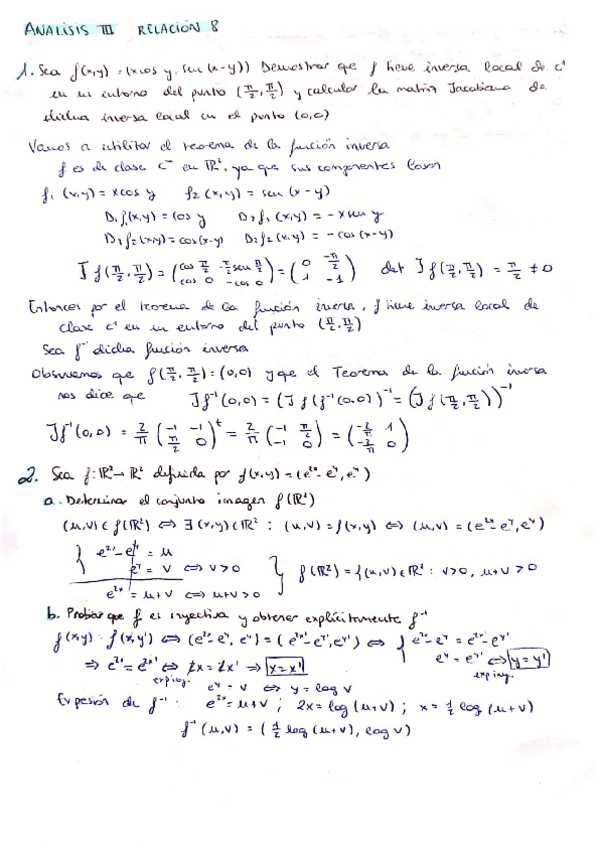 ANALISIS III RELACIÓN 8
1. Sea f(x,y) = (x cos y, sen (x-y)) Demostrar que f tiene inversa local de C¹
en un entorno del punto (π/2, π/2) y calcular la matriz Jacobiana de
dicha inversa local en el punto (0,0)
Vamos a utilizar el teorema de la función inversa
f es de clase C^∞ en ℝ², ya que sus componentes lo son
f₁ (x,y) = x cos y f₂ (x,y) = sen (x-y)
D₁f₁(x,y) = cos y D₂f₁ (x,y) = - x sen y
D₁f₂(x,y) = cos(x-y) D₂f₂ (x,y) = - cos (x-y)
Jf(π/2, π/2) = (cos π/2 -π/2 sen π/2; cos 0 -cos 0) = (0 -π/2; 1 -1) det Jf(π/2, π/2) = π/2 ≠ 0
Entonces por el teorema de la función inversa, f tiene inversa local de
clase C¹ en un entorno del punto (π/2, π/2)
Sea f⁻¹ dicha función inversa
Observemos que f(π/2, π/2) = (0,0) y que el Teorema de la función inversa
nos dice que Jf⁻¹(0,0) = (Jf(f⁻¹(0,0)))⁻¹ = (Jf(π/2, π/2))⁻¹
Jf⁻¹(0,0) = 2/π (-1 -1; π/2 0)ᵗ = 2/π (-1 π/2; -1 0) = (-2/π 1; -2/π 0)
2. Sea f: ℝ² → ℝ² definida por f(x,y) = (e^2x - e^y, e^y)
a. Determinar el conjunto imagen f(ℝ²)
(u,v) ∈ f(ℝ²) ⇔ ∃ (x,y) ∈ ℝ² : (u,v) = f(x,y) ⇔ (u,v) = (e^2x - e^y, e^y)
e^2x - e^y = u
e^y = v ⇔ v > 0 } f(ℝ²) = {(u,v) ∈ ℝ² : v > 0, u+v > 0
e^2x = u+v ⇔ u+v > 0
b. Probar que f es inyectiva y obtener explícitamente f⁻¹
f(x,y) = f(x',y') ⇔ (e^2x - e^y, e^y) = (e^2x' - e^y', e^y') ⇔ { e^2x - e^y = e^2x' - e^y'
⇒ e^2x = e^2x' ⇔ 2x = 2x' ⇒ x = x' e^y = e^y' ⇔ y = y'
exp iny. exp iny.
e^y = v ⇔ y = log v
Expesión de f⁻¹ : e^2x = u+v ; 2x = log (u+v) ; x = 1/2 log (u+v)
f⁻¹ (u,v) = (1/2 log (u+v), log v)